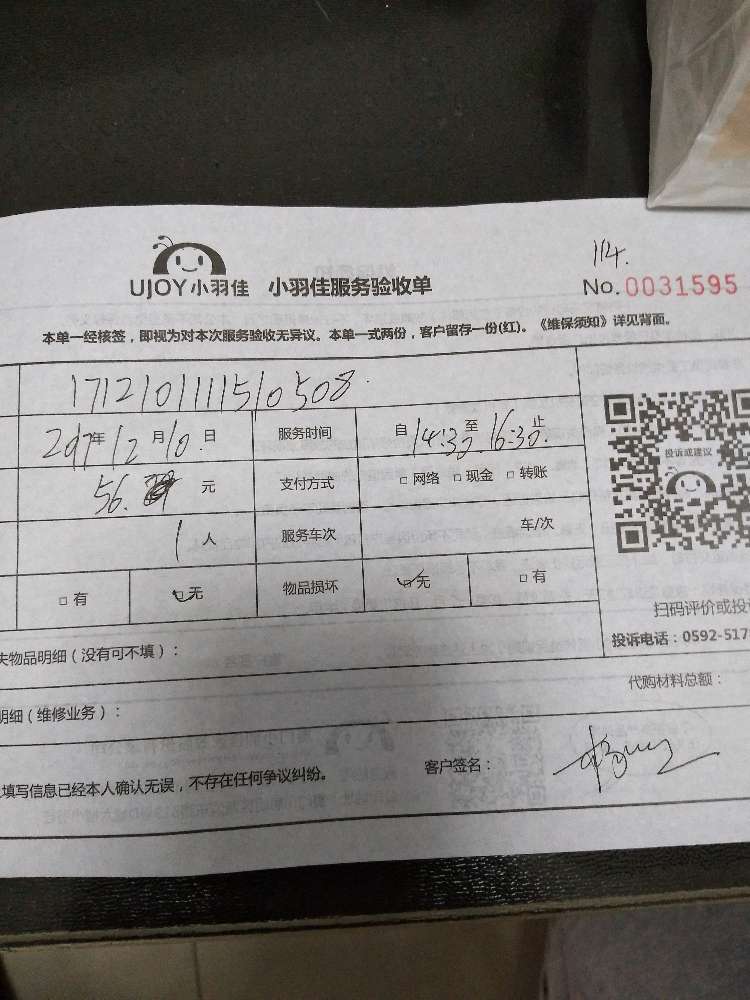 114.
UJOY小羽佳 小羽佳服务验收单 No.0031595
本单一经核签，即视为对本次服务验收无异议。本单一式两份，客户留存一份(红)。《维保须知》详见背面。
171210111510508
2017年12月10日 服务时间 自14:30至16:30止
56. 元 支付方式 □网络 □现金 □转账
1人 服务车次 车/次
投诉或建议
□有 □无 物品损坏 □无 □有
扫码评价或投
失物品明细（没有可不填）： 投诉电话：0592-517
代购材料总额：
明细（维修业务）：
填写信息已经本人确认无误，不存在任何争议纠纷。 客户签名：